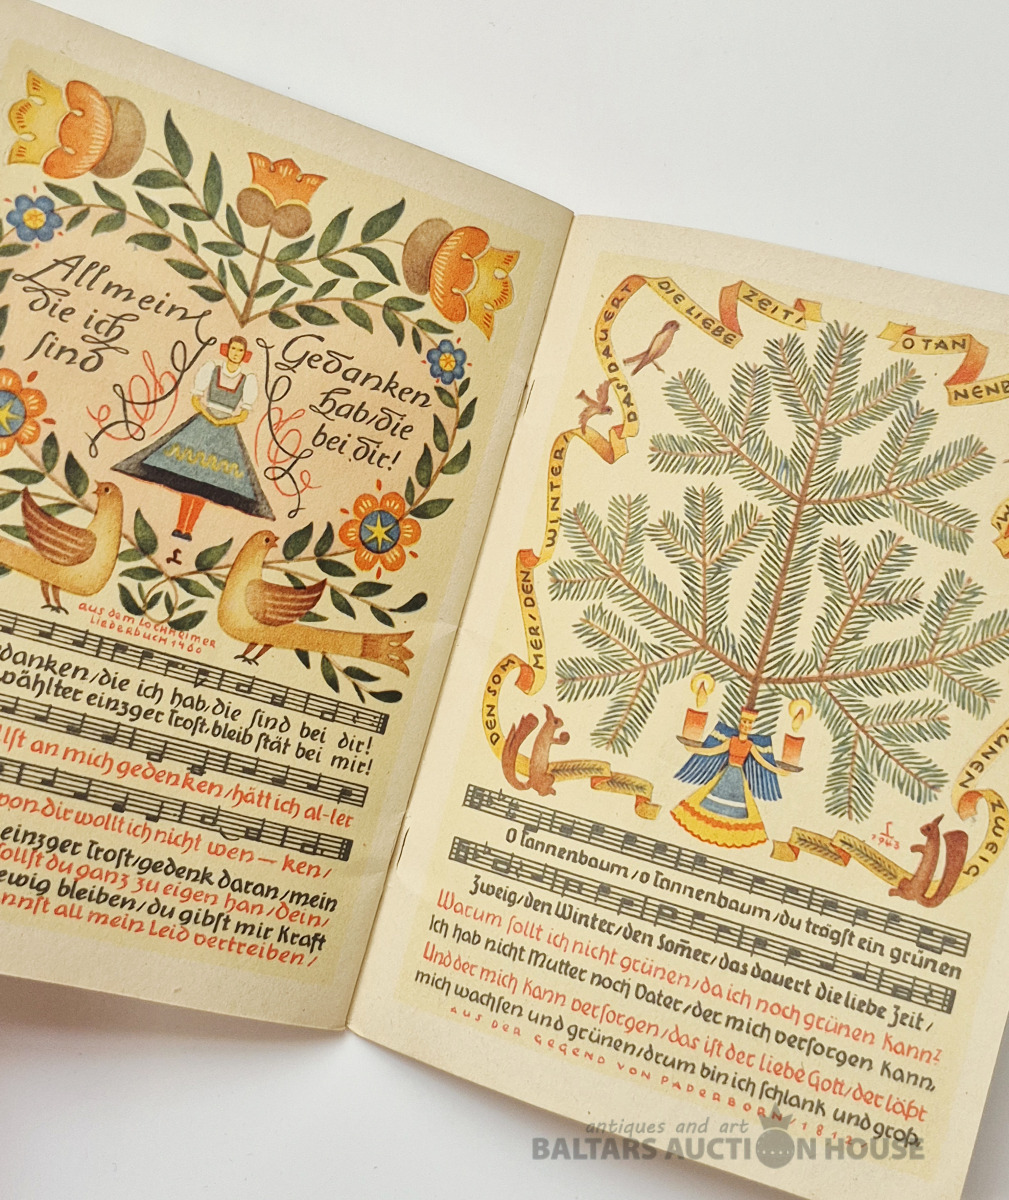 All mein
die ich
sind
Gedanken
hab/die
bei dir!
L
aus dem Lochheimer
Liederbuch 1460
danken/die ich hab, die sind bei dir!
wählter einzger Trost, bleib stät bei mir!
llst an mich gedenken/hätt ich al-ler
von dir wollt ich nicht wen— ken/
einzger Trost/gedenk daran/mein
sollst du ganz zu eigen han/dein/
ewig bleiben/du gibst mir Kraft
nnst all mein Leid vertreiben/
O TAN
NENB
ZWEIG
DEN SOM
MER/DEN
WINTER/
DAS DAUERT
DIE LIEBE
ZEIT!
L
1943
O Tannenbaum/o Tannenbaum/du trägst ein grünen
Zweig/den Winter/den Som̄er/das dauert die liebe Zeit/
Warum sollt ich nicht grünen/da ich noch grünen kann?
Ich hab nicht Mutter noch Vater/der mich versorgen kann,
Und der mich kann versorgen/das ist der liebe Gott/der läßt
mich wachsen und grünen/drum bin ich schlank und groß.
AUS DER GEGEND VON PADERBORN/1812
antiques and art
BALTARS AUCTION HOUSE